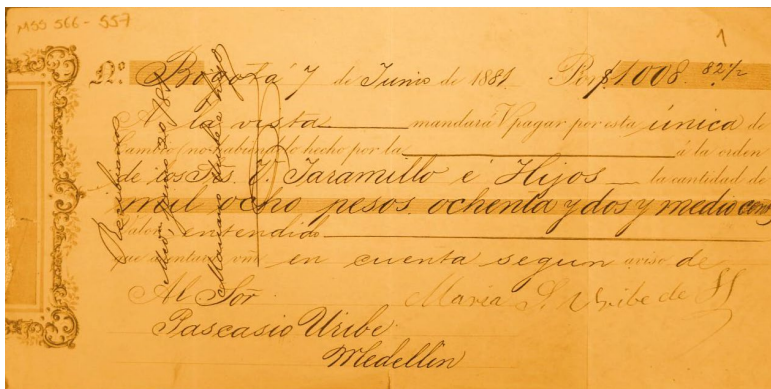 MSS 566-557
1
Nº Bogotá 7 de Junio de 1881 Por $1008 82½
A la vista mandará V pagar por esta única de
Cambio (no habiendolo hecho por la á la orden
de los Srs. V. Jaramillo é Hijos la cantidad de
mil ocho pesos ochenta y dos y medio cens
Valor entendido
que sentará en cuenta segun aviso de
Al Sor Maria S. Uribe de
Pascasio Uribe
Medellin
Recibimos